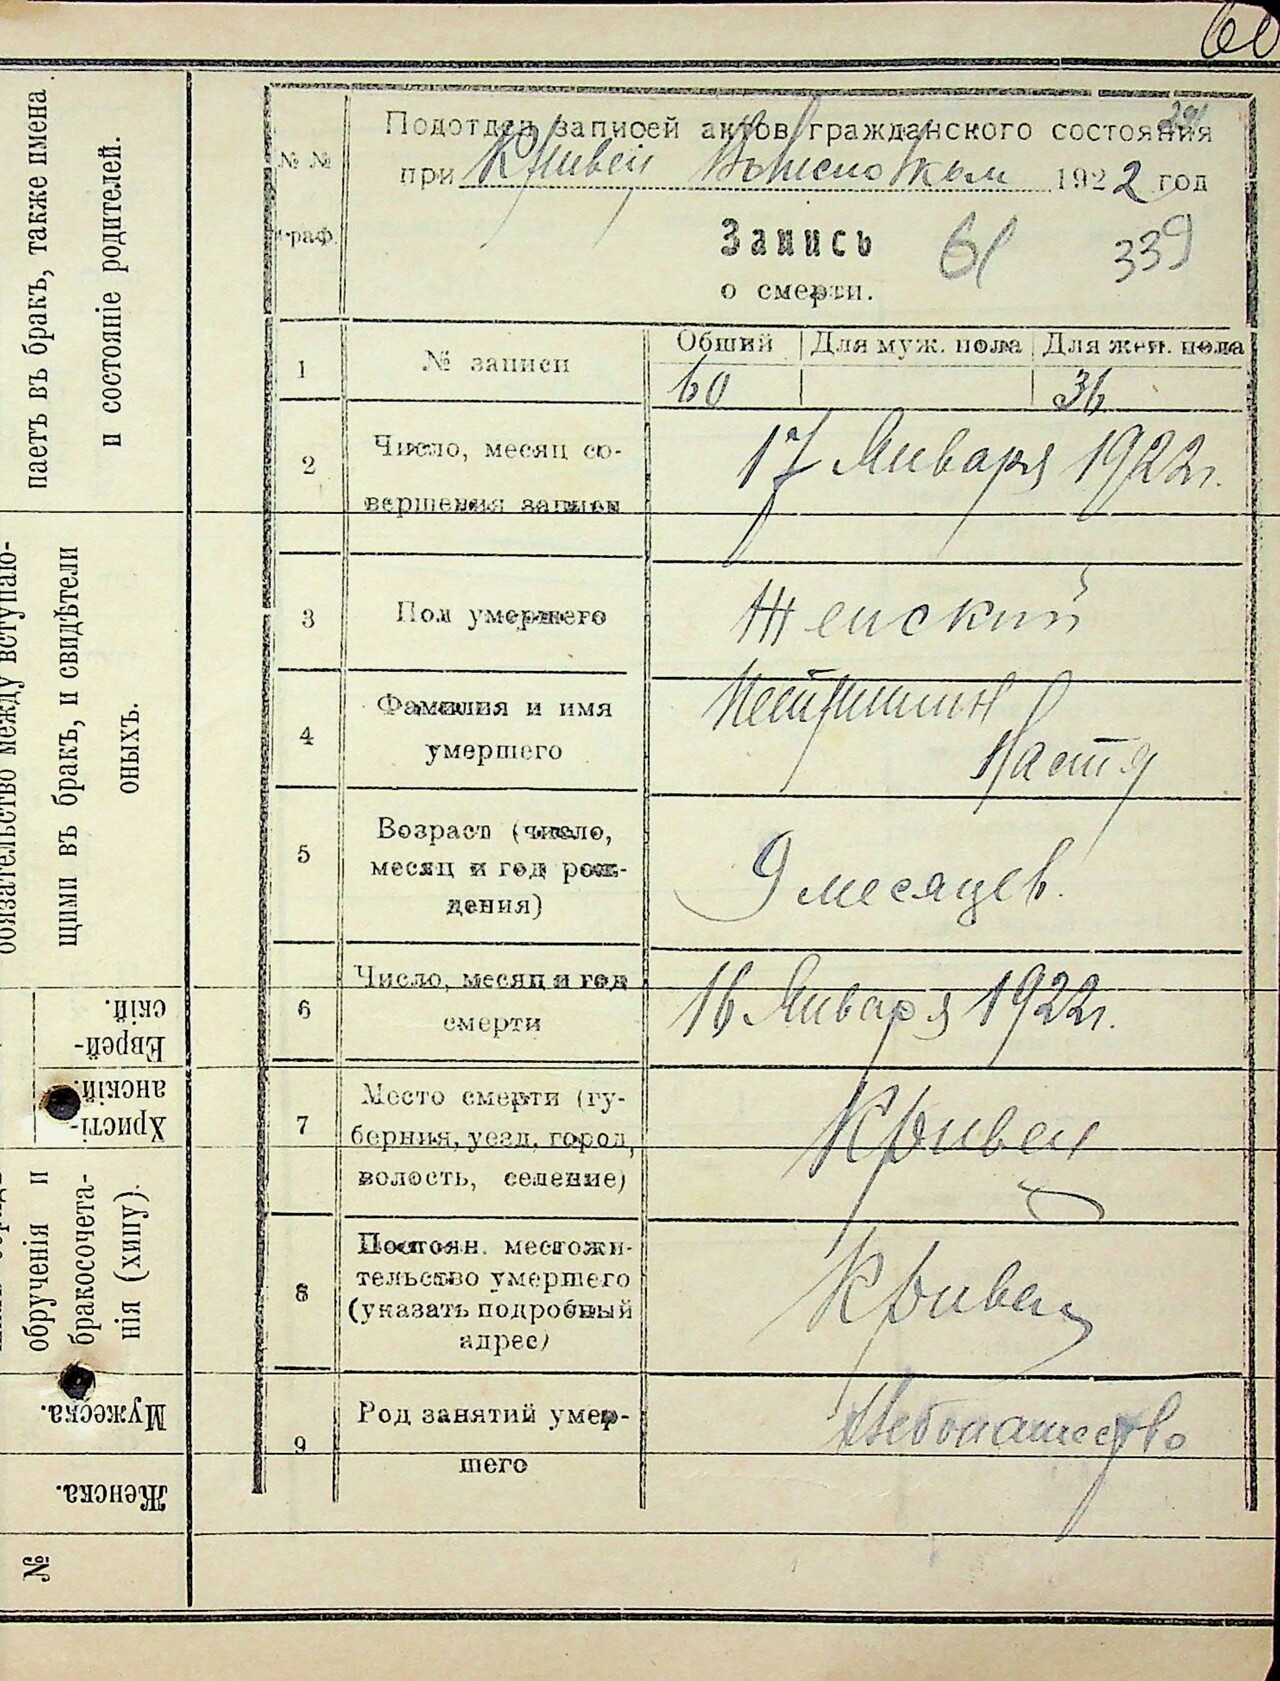 60
Подотдел записей актов гражданского состояния
при Кривец 1922 год
№ №
граф.
Запись 61 339
о смерти.
1 № записи Общий Для муж. пола Для жен. пола
60 36
2 Число, месяц со-
вершения записи
17 Января 1922 г.
3 Пол умершего Женский
4 Фамилия и имя
умершего
Настя
5 Возраст (число,
месяц и год рож-
дения)
9 месяцев.
6 Число, месяц и год
смерти
16 Января 1922 г.
7 Место смерти (гу-
берния, уезд, город,
волость, селение)
Кривец
8 Постоян. местожи-
тельство умершего
(указать подробный
адрес)
Кривец
9 Род занятий умер-
шего
Хлебопашество
паетъ въ бракъ, также имена
и состояніе родителей.
обязательство между вступаю-
щими въ бракъ, и свидѣтели
оныхъ.
Еврей-
скій.
Христі-
анскій.
обрученія и
бракосочета-
нія (хипу).
Мужеска.
Женска.
№